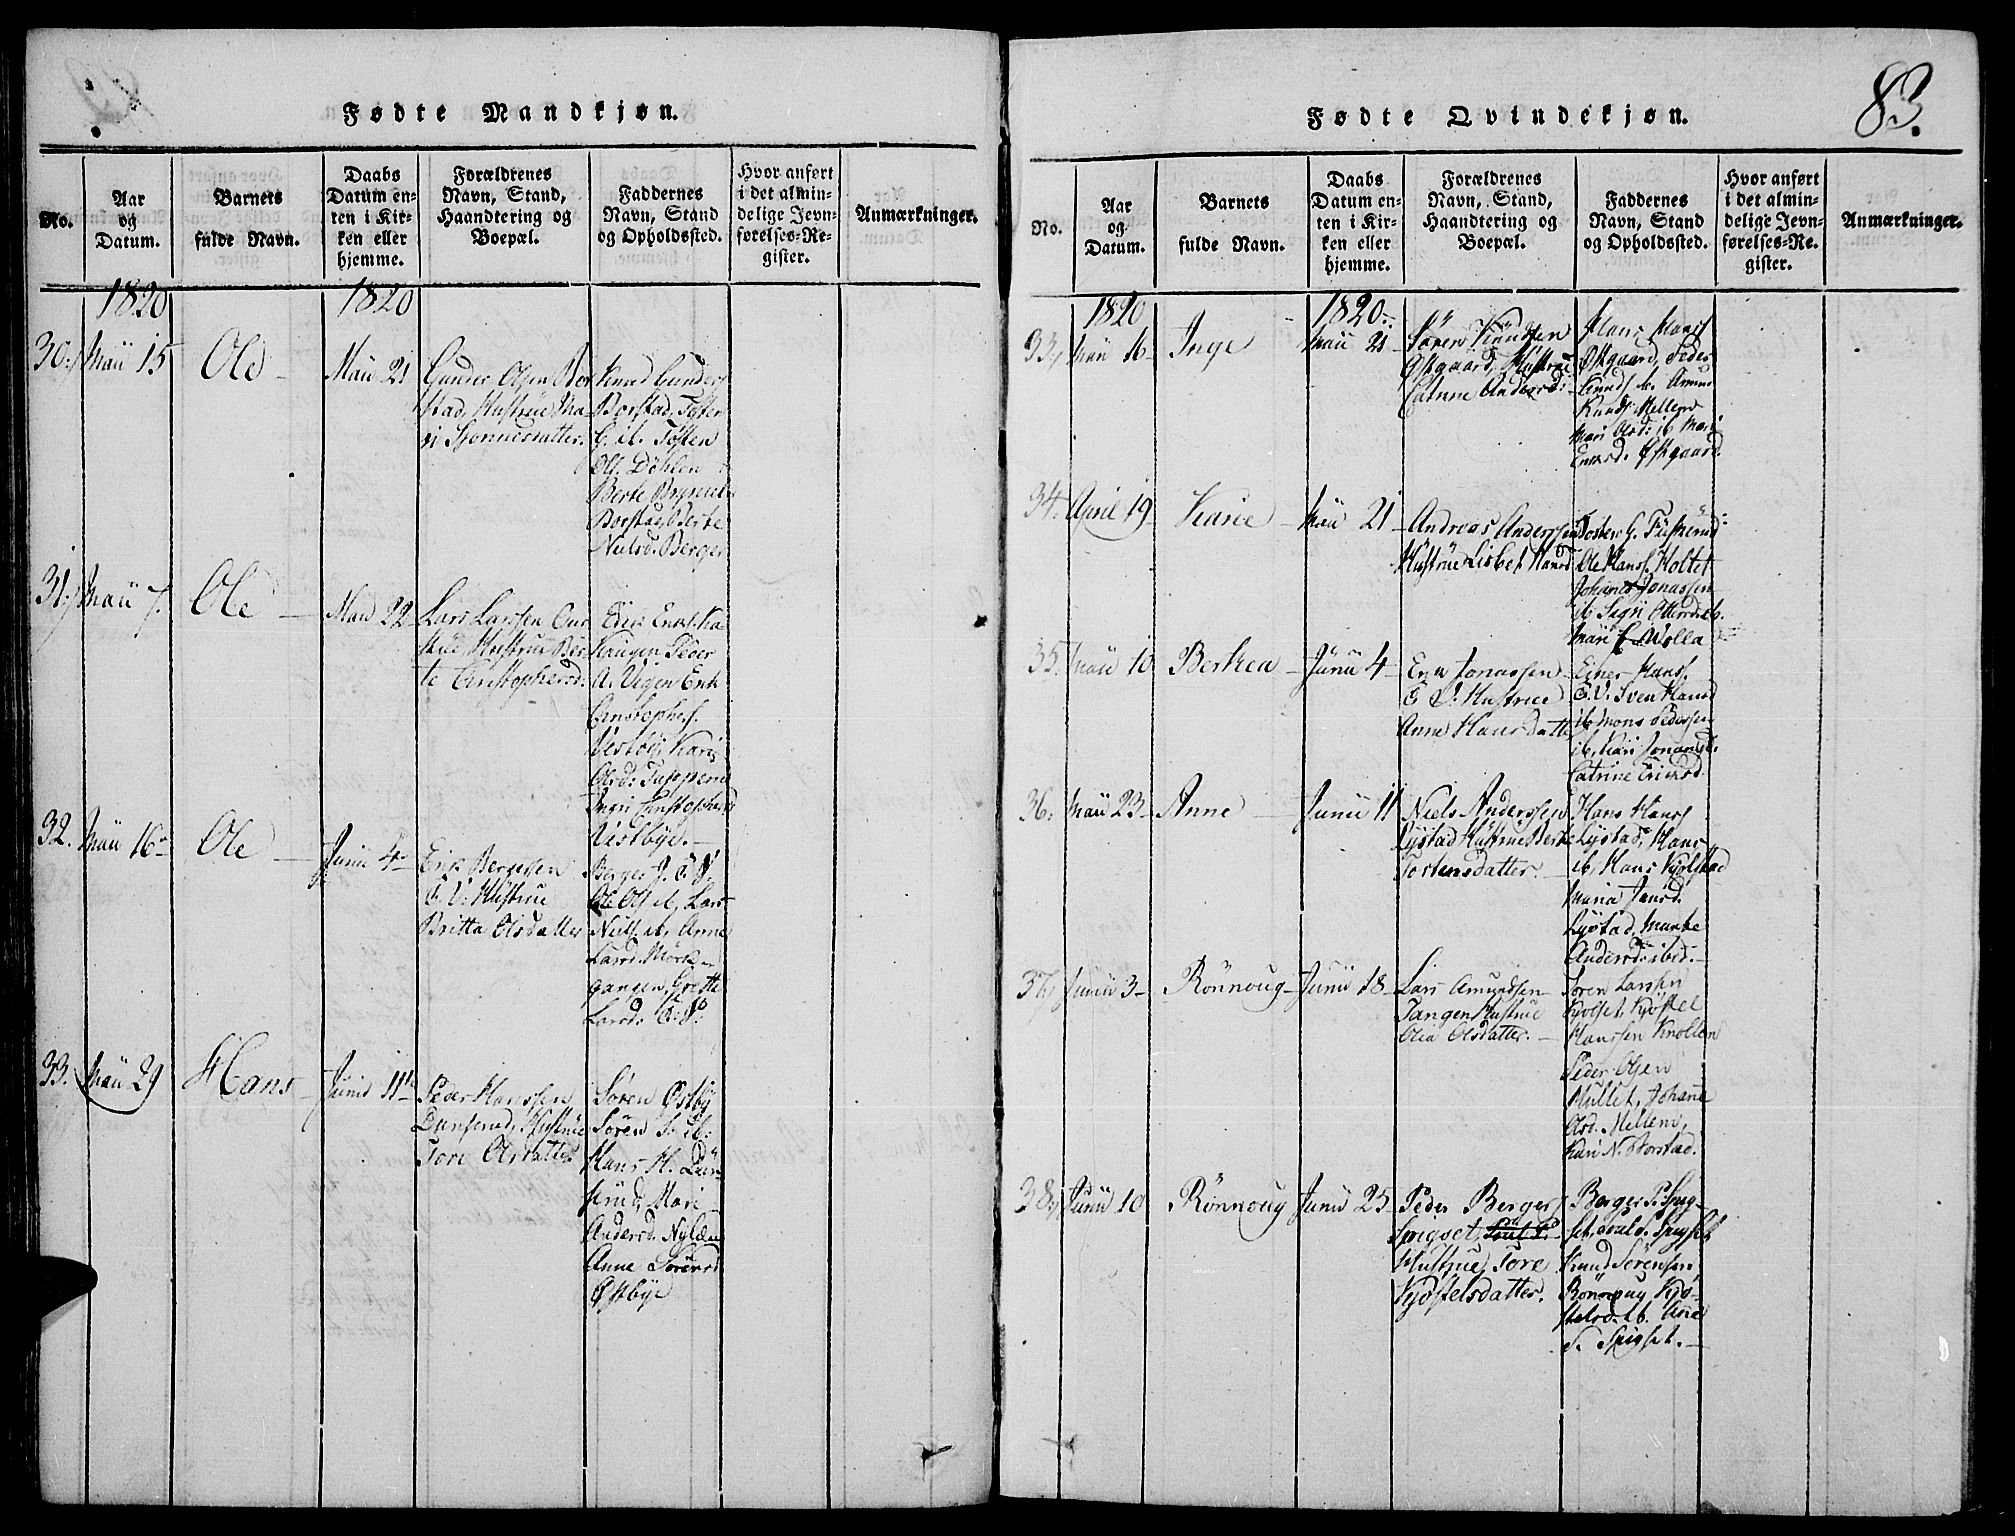 Fødte Mandkjøn.
No.
Aar
og
Datum.
Barnets
fulde Navn.
Daabs
Datum en-
ten i Kir-
ken eller
hjemme.
Forældrenes
Navn, Stand,
Haandtering og
Boepæl.
Faddernes
Navn, Stand
og Opholdssted.
Hvor anført
i det almin-
delige Jevn-
førelses-Re-
gister.
Anmærkninger.
1820
1820
30. Maii 15
Ole
Maii 21
Gunder Olsen Bor
stad, Hustrue Ma
Knud Gunders
Borstad, Tosten
G. ib. Tosten
Ols. Döhlen
Berte Brynild
Borstad, Berte
Nielsd. Berger
31. Maii 7.
Ole
Maii 22
Lars Larssen
Hustrue Ber
te Christophersd.
Haugen Peder
A. Vigen Erik
Christophers.
Vestby, Kari
Olsd: Tupperu
Ingri Christophersd
Vestbye.
32. Maii 16
Ole
Junii 4
Erik Bergersen
E. V. Hustrue
Britta Olsdatter
Berger J. E. V.
Ole Ols. ib, Lars
Niels. ib, Anne
Larsd. Mörk-
gangen, Grethe
Larsd. E. V.
33. Maii 29
Hans
Junii 11
Peder Hanssen
Hustrue
Tore Olsdatter
Sören Østby
Sören S. ib.
Hans H.
Mari
Andersd. Nylæn
Anne Sörensd
Østbye
83.
Fødte Qvindekjøn.
No.
Aar
og
Datum.
Barnets
fulde Navn.
Daabs
Datum en-
ten i Kir-
ken eller
hjemme.
Forældrenes
Navn, Stand,
Haandtering og
Boepæl.
Faddernes
Navn, Stand
og Opholdssted.
Hvor anført
i det almin-
delige Jevn-
førelses-Re-
gister.
Anmærkninger.
1820
1820
33. Maii 16
Inge
Maii 21
Sören Knudsen
Østgaard, Hustrue
Catrine Andersd:
Hans Hans
Østgaard, Peder
Knuds. ib. Amund
Knuds. Mellem
Mari Olsd: ib. Mari
Ericsd. Østgaard.
34. April 19
Karie
Maii 21
Andreas Anderssen
Hustrue Lisbet Hansd
Tosten G. Fuskerud
Ole Hans. Holtet
Johanes Jonassen
ib. Sigri
Mari E. Wolla
35. Maii 10
Berthea
Junii 4
Eric Jonassen
E. V. Hustrue
Anne Hansdatter
Einer Hans.
E. V. Iver Hansd
ib. Mons Pedersen
ib. Kari Jonasd.
Catrine Ericsd.
36. Maii 23
Anne
Junii 11
Niels Anderssen
Lystad Hustrue Berte
Tostensdatter.
Hans Hans
Lystad, Hans
ib, Hans Kyllstad
Maria Jansd.
Lystad, Marthe
Andersd: ibid.
37. Junii 3
Rönnoug
Junii 18
Lars Amundsen
Tangen Hustrue
Olea Olsdatter.
Soren Larssen
Kjolset, Kjöstel
Hanssen Knollen
Peder Olsen
Hullet, Johane
Olsd. Mellem,
Kari N. Borstad.
38. Junii 10
Rönnoug
Junii 25
Peder Berger
Spigset,
Hustrue, Tore
Kjöstelsdatter.
Berger P. Spig-
set, P. Spigset
Knud Sörensen,
Rönnoug Kjö-
stelsd. ib. Ane
S. Spigset.